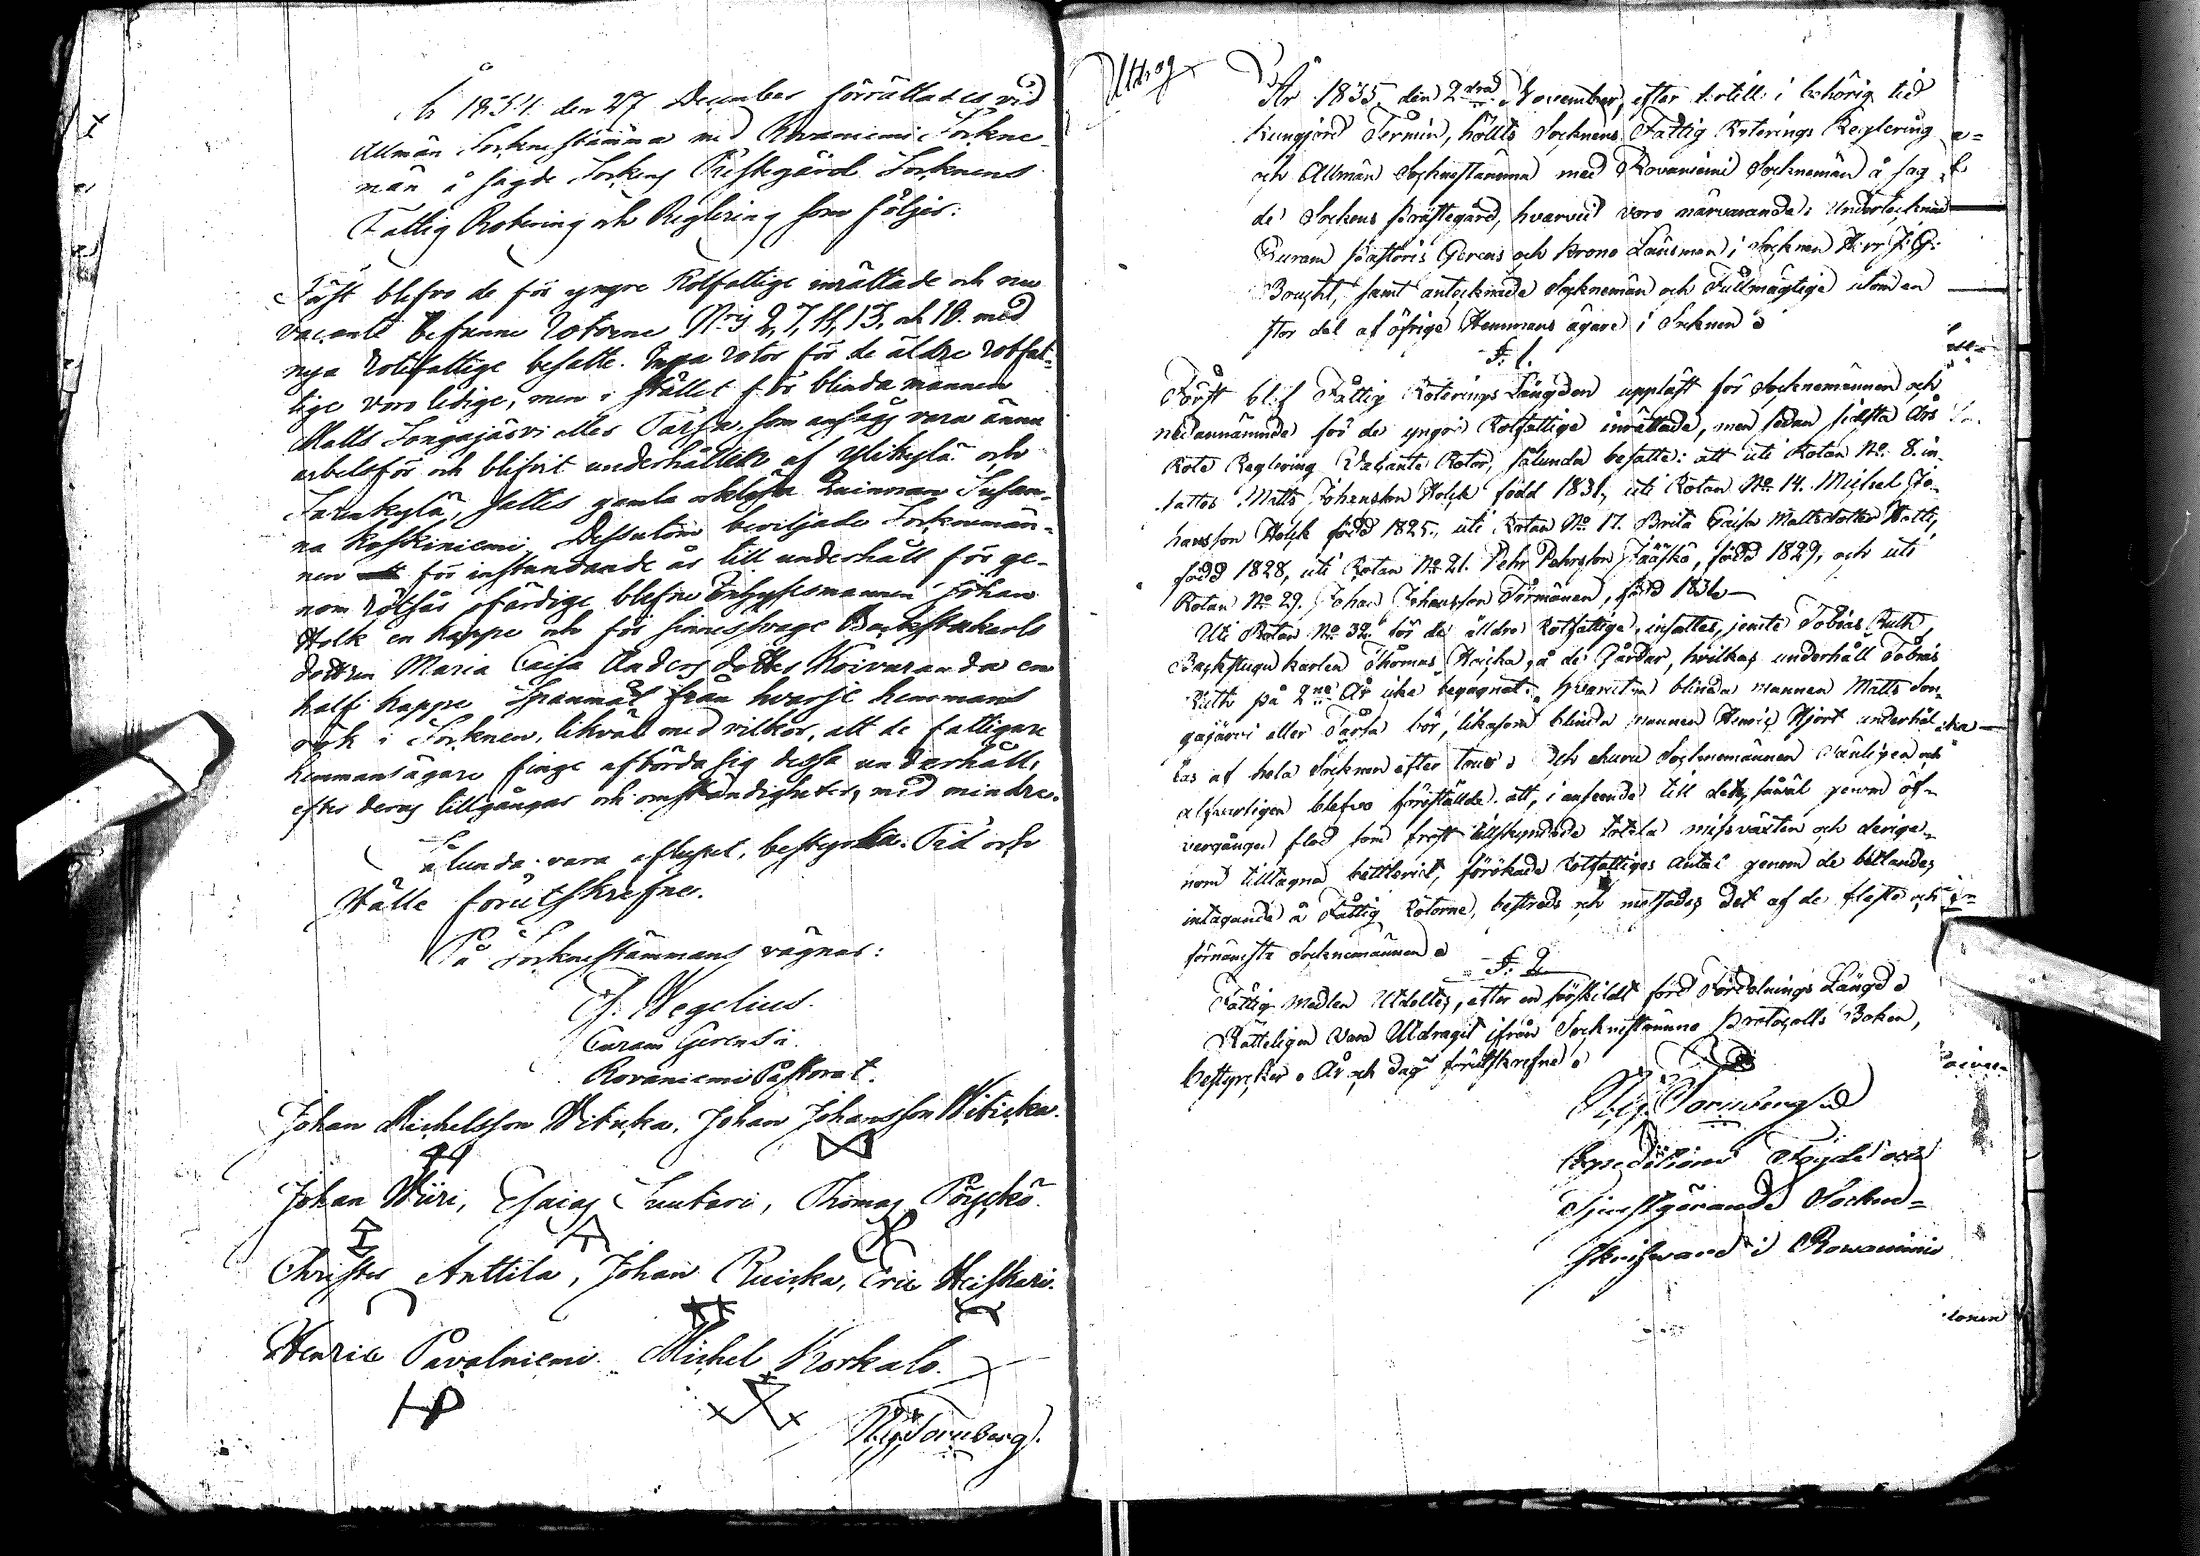 År 1834 den 27 December förrättades vid
Allmän Sockne stämma med Rovaniemi Sockne-
män å sagde Sockens Prestegård Socknens
Fattig Rotering och Reglering som följer:
Först blefvo de för yngre Rotfattige inrättade och nu
vacante befunne Rotorne N:ris 2, 7, 11, 13, och 18. med
nya Rotefattige besatte. Inga rotor för de äldre rotfat-
tige voro ledige, men i stället för blinda mannen
Matts Songajärvi eller Tarsa, som ansågs vara ännu
arbetsför och blifvit underhållen af Ylikylä och
Sarenkylä, sattes gamla orkeslösa Qvinnan Susan-
na Koskiniemi. Dessutom beviljade Socknemän-
nen för instundande år till underhåll för ge-
nom rötsår ofärdige blefne Inhysesmannen Johan
Holk en kappe och för sinnessvage Backstukarls
dottren Maria Caisa Anders dotter Koivuranda en
half kappe Spanmål från hvarje hemmans
rök i Socknen, likväl med vilkor, att de fattigare
hemmansägare finge afbörda sig dessa underhåll,
efter deras tillgångar och omständigheter, med mindre.
Sålunda vara aflupet, bestyrka. Tid och
Ställe förutskrefne.
På Socknestämmans vägnar:
J. Wegelius.
Curam Gerens i
Rovaniemi Pastorat.
Johan Michelsson Wituka, Johan Johansson Witicka.
Johan Wiiri, Esaias Suutari, Thomas Pöyckö.
Christer Anttila, Johan Ruicka, Eric Heiskari.
Henric Pavalniemi. Michel Korkalo.
Tornberg.
Utdrag
År 1835, den 2dra November, efter dertill i behörig tid
kungjord Termin, hölts Socknens Fattig Roterings Reglering
och Allmän Socknestämma med Rovaniemi Socknemän å sag
de Sockens Prästegård, hvarvid voro närvarande: Undertecknad
Curam Pastoris Gerens och Krono Länsman i Socknen Herr J: G:
samt antecknade Socknemän och Fullmägtige utom en
stor del af öfrige Hemmans ägare i Socknen
§. 1.
Först blef Fattig Roterings Längden uppläst för Socknemännen och
nedannämnde för de yngre Rotfattige inrättade, men sedan sidsta års
Rote Reglering Vacante Rotor, sålunda besatte: att uti Rotan No. 8. in-
sattes Matts Johansson Holck född 1831, uti Rotan No 14. Michel Jo-
hansson Holck född 1825, uti Rotan No 17. Brita Caisa Mattsdotter Hatti,
född 1828, uti Rotan No 21. Pehr Pehrsson Jääskö, född 1829, och uti
Rotan No 29. Johan Johansson Törmänen, född 1836
Uti Rotan No 32. för de älldre Rotfattige, insattes, jemte Tobias Ruth,
Backstugu karlen Thomas å de Gårdar, hvilkas underhåll Tobias
Ruth på 2ne År icke begagnat. Hvaremot blinda mannen Matts Son-
gajärvi eller Tarsa bör, likasom blinda mannen Henric Hjort underhål-
las af hela Socknen efter tour. Och ehuru Socknemännen vänligen och
alfvarligen blefvo föreställde, att, i anseende till dels, såväl genom öf-
vergången flod som frost tillskyndade totala missväxten och derige-
nom tilltagna bettleriet, förökade Rotfattiges antal genom de bettlandes
intagande å Fattig Rotorne, bestreds och motsades det af de fleste och
förnämsta Socknemännen
§. 2
Fattig medlen Utdeltes, efter en särskildt förd Fördelnings Längd
Rätteligen vara Utdraget ifrån Sockne stämmo Protocolls Boken,
bestyrker. År och dag förutskrefne
Tornberg
Expeditions Fogde och
Tjenstgörande Socken-
skrifvare i Rovaniemi